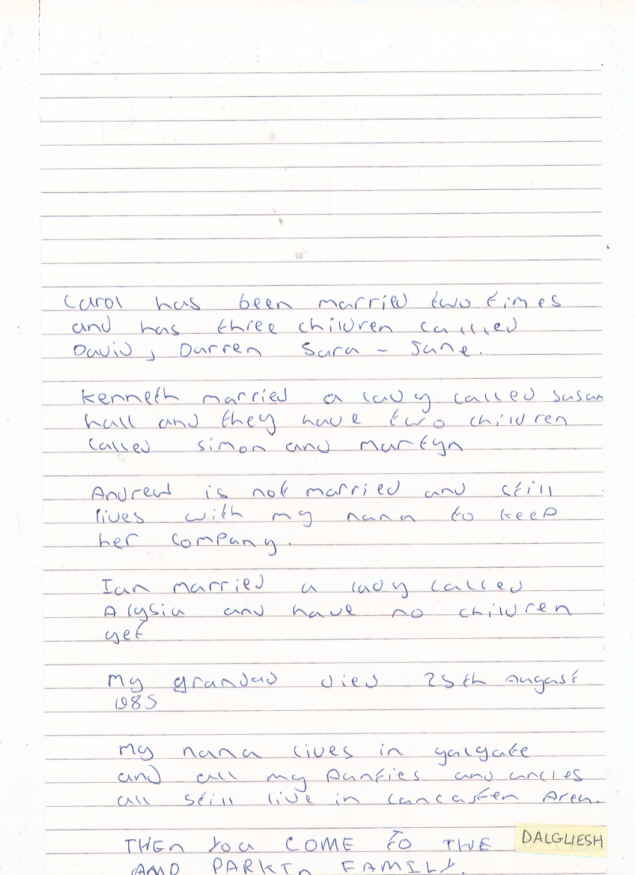 Carol has been married two times
and has three children called
David, Darren Sara - Jane.
Kenneth married a lady called Susan
hall and they have two children
called simon and martyn
Andrew is not married and still
lives with my nana to keep
her company.
Ian married a lady called
Alysia and have no children
yet
My grandad died 25th August
1985
My nana lives in galgate
and all my Aunties and uncles
all still live in Lancaster Area.
THEN YOU COME TO THE DALGLIESH
AND PARKIN FAMILY.